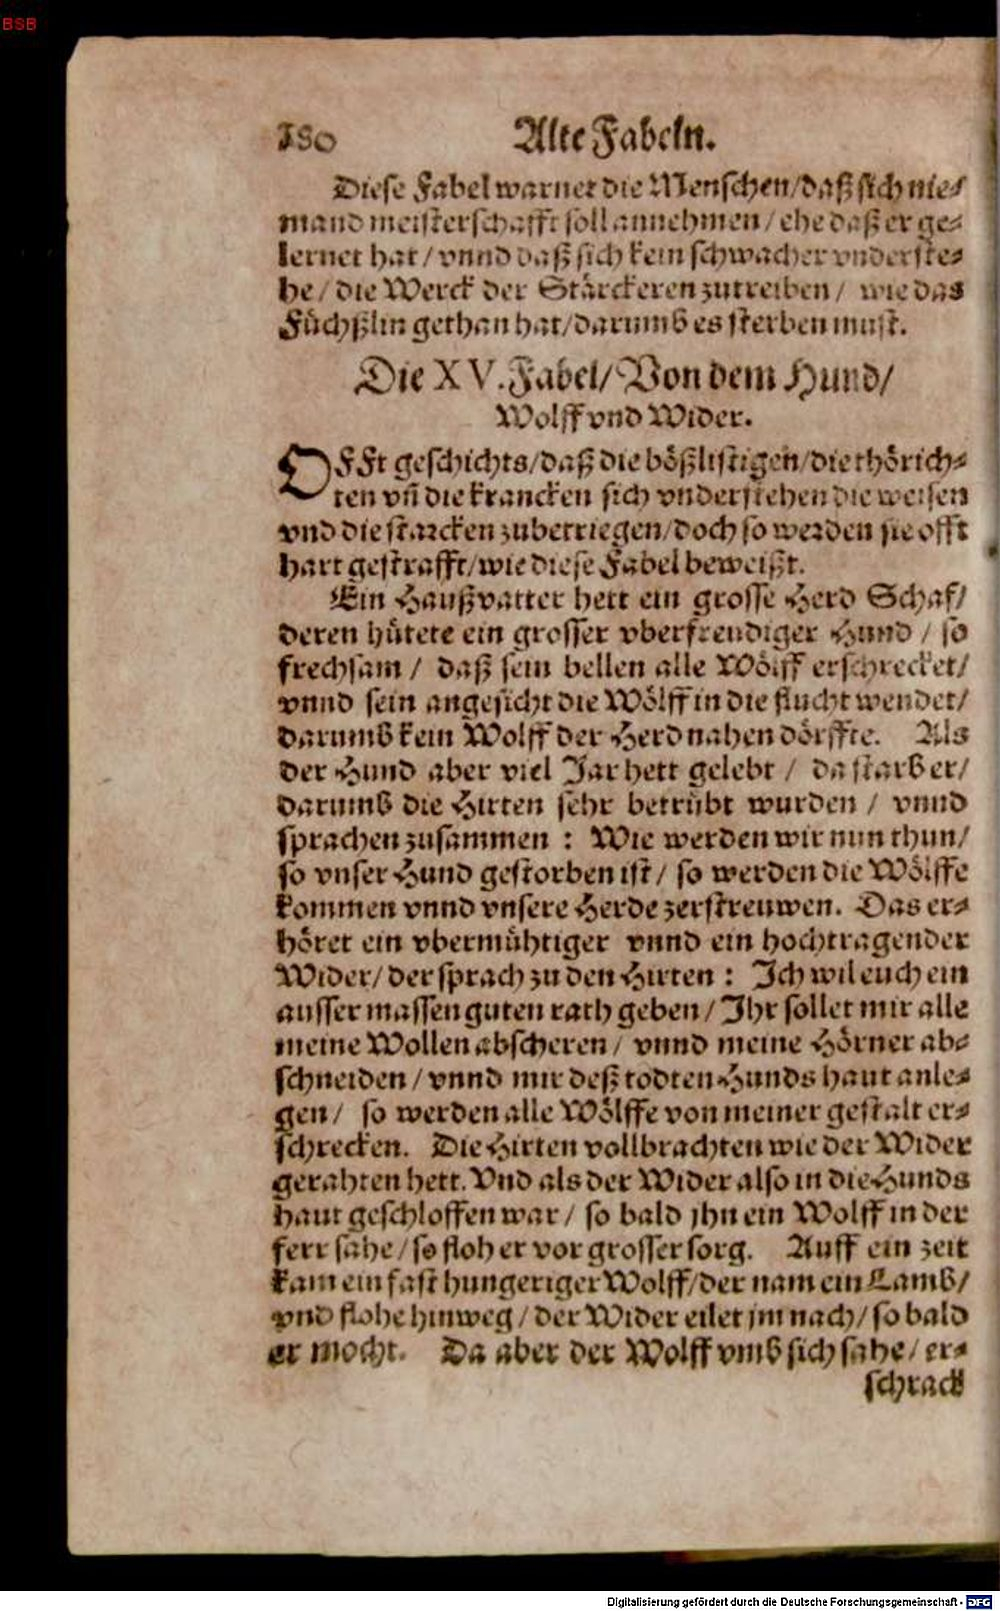 BSB
180 Alte Fabeln.
Diese Fabel warnet die Menschen/daß sich nie⸗
mand meisterschafft soll annehmen/ehe daß er ge⸗
lernet hat/vnnd daß sich kein schwacher vnderste⸗
he/die Werck der Stärckeren zutreiben/ wie das
Füchßlin gethan hat/darumb es sterben must.
Die XV. Fabel/Von dem Hund/
Wolff vnd Wider.
OFFt geschichts/daß die bößlistigen/die thörich⸗
ten vñ die krancken sich vnderstehen die weisen
vnd die starcken zubetriegen/doch so werden sie offt
hart gestrafft/wie diese Fabel beweißt.
Ein Haußvatter hett ein grosse Herd Schaf/
deren hütete ein grosser vberfreudiger Hund / so
frechsam / daß sein bellen alle Wölff erschrecket/
vnnd sein angesicht die Wölff in die flucht wendet/
darumb kein Wolff der Herd nahen dörffte. Als
der Hund aber viel Jar hett gelebt / da starb er/
darumb die Hirten sehr betrübt wurden / vnnd
sprachen zusammen : Wie werden wir nun thun/
so vnser Hund gestorben ist/ so werden die Wölffe
kommen vnnd vnsere Herde zerstreuwen. Das er⸗
höret ein vbermühtiger vnnd ein hochtragender
Wider/der sprach zu den Hirten : Ich wil euch ein
ausser massen guten rath geben/Ihr sollet mir alle
meine Wollen abscheren/ vnnd meine Hörner ab⸗
schneiden/vnnd mir deß todten Hunds haut anle⸗
gen/ so werden alle Wölffe von meiner gestalt er⸗
schrecken. Die Hirten vollbrachten wie der Wider
gerahten hett. Vnd als der Wider also in die Hunds
haut geschloffen war/ so bald jhn ein Wolff in der
ferr sahe/so floh er vor grosser sorg. Auff ein zeit
kam ein fast hungeriger Wolff/der nam ein Lamb/
vnd flohe hinweg/der Wider eilet jm nach/so bald
er mocht. Da aber der Wolff vmb sich sahe/er⸗
schrack
Digitalisierung gefördert durch die Deutsche Forschungsgemeinschaft - DFG